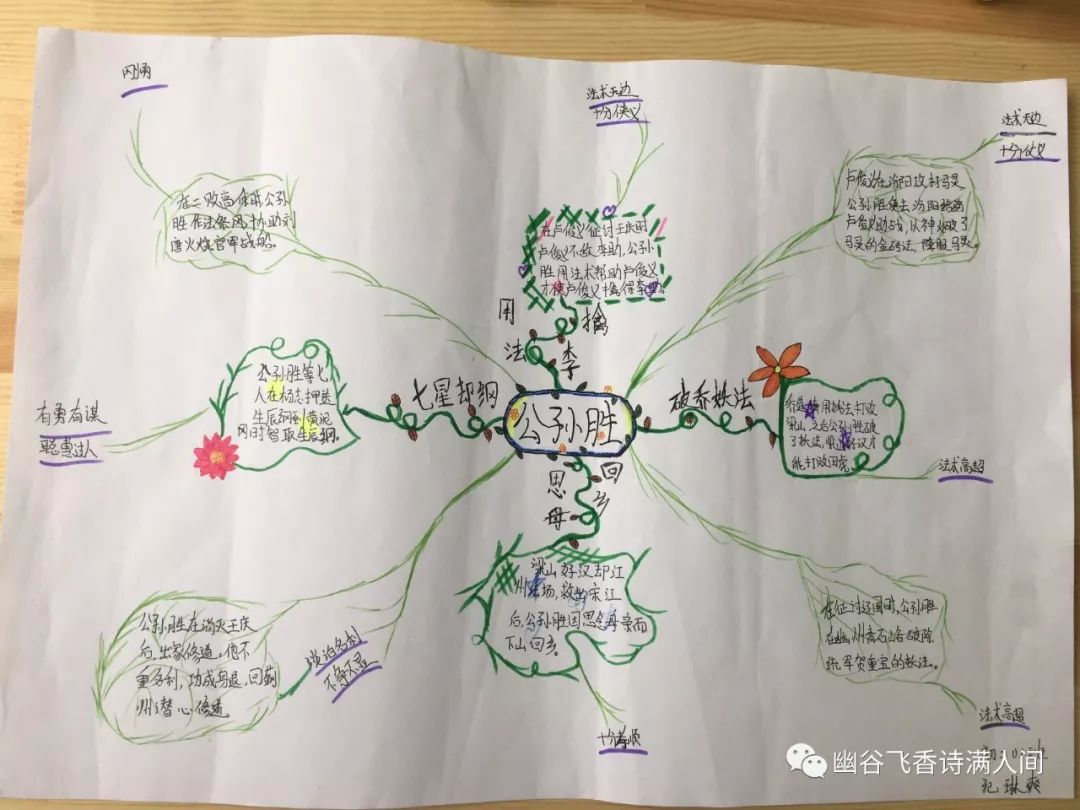 公孙胜
法术无边
十分侠义
用法
擒李
在卢俊义征讨王庆时
卢俊义不敌李助,公孙
胜用法术帮助卢俊义
才使卢俊义擒得李助。
法术无边
十分仗义
卢俊义在汾阳攻打马灵
公孙胜便去汾阳
卢俊义助战,从神
马灵的金砖法,降服马灵
破乔妖法
用妖法打败
梁山,之后公孙胜破
了妖法,梁山好汉才
能打败田虎
法术高超
在征讨辽国时,公孙胜
在幽州青石峪破除
统军贺重宝的妖法。
法术高超
回乡
思母
梁山好汉却江
州法场,救出宋江
后,公孙胜因思念母亲而
下山回乡。
十分孝顺
公孙胜在消灭王庆
后,出家修道。他不
重名利,功成身退,回蓟
州潜心修道
淡泊名利
不争不显
七星却纲
公孙胜等七
人在杨志押送
生辰纲到黄泥
冈时智取生辰纲。
有勇有谋
聪惠过人
在二败高俅时公孙
胜作法祭风,协助刘
唐火烧官军战船。
纪琳爽
幽谷飞香诗满人间